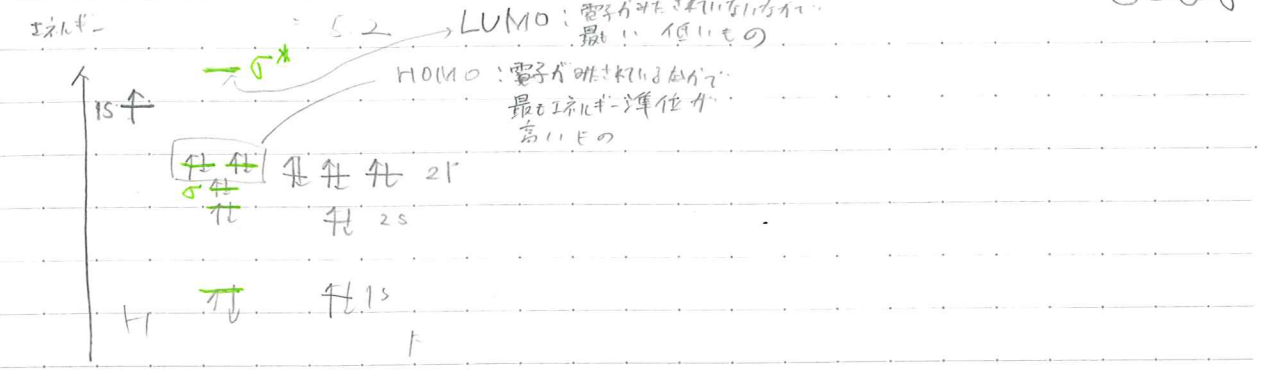 エネルギー
5.2
LUMO：電子がみたされていないなかで
最も 低いもの
σ*
HOMO：電子がみたされているなかで
最もエネルギー準位が
高いもの
1s
2p
σ
2s
1s
H
F